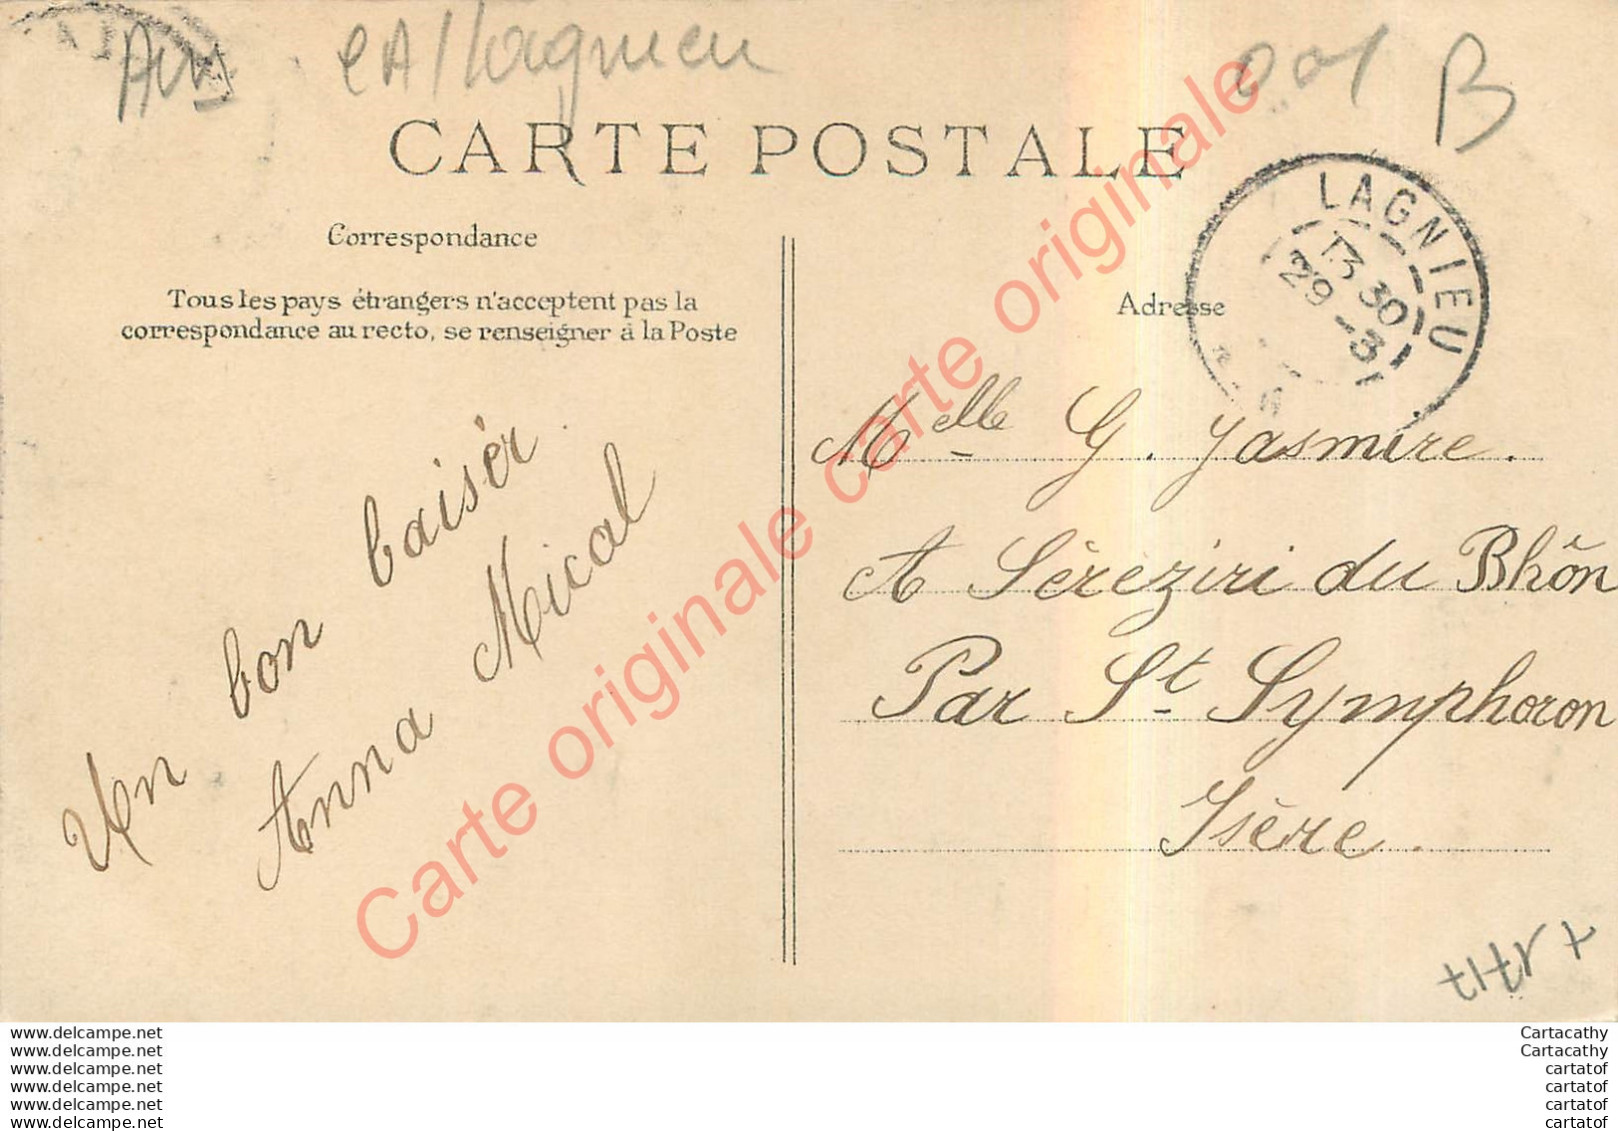 Ain
CARTE POSTALE
Correspondance
Tous les pays étrangers n'acceptent pas la
correspondance au recto, se renseigner à la Poste
Un bon baisér
Anna Mical
B
LAGNIEU
13 30
29 - 3
Adresse
Melle G. Jasmire.
A Séreziri du Bhôn
Par St. Symphoron
Isère.
Carte originale carte originale
www.delcampe.net
www.delcampe.net
www.delcampe.net
www.delcampe.net
www.delcampe.net
www.delcampe.net
Cartacathy
Cartacathy
cartatof
cartatof
cartatof
cartatof